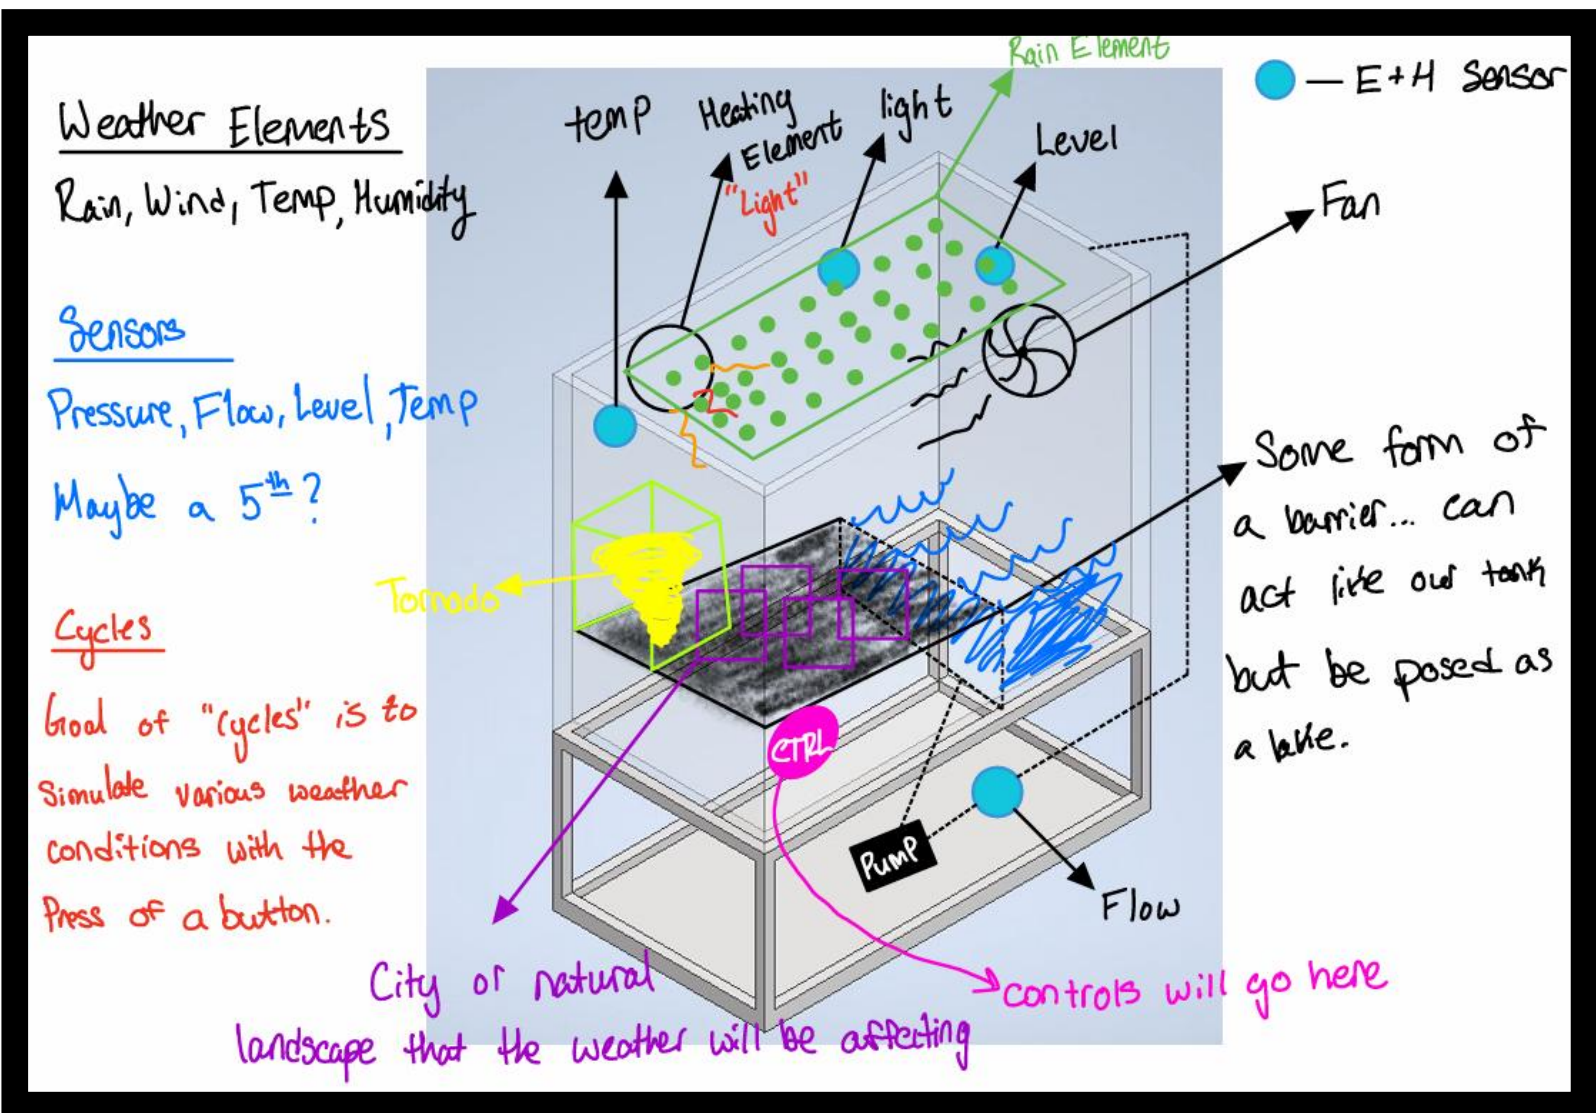 Weather Elements
Rain, Wind, Temp, Humidity
Sensors
Pressure, Flow, Level, Temp
Maybe a 5th?
Cycles
Goal of "cycles" is to
simulate various weather
conditions with the
Press of a button.
temp
Heating
Element
"Light"
light
Rain Element
Level
— E+H Sensor
Fan
Some form of
a barrier... can
act like our tank
but be posed as
a lake.
Tornado
CTRL
Pump
Flow
controls will go here
City or natural
landscape that the weather will be affecting